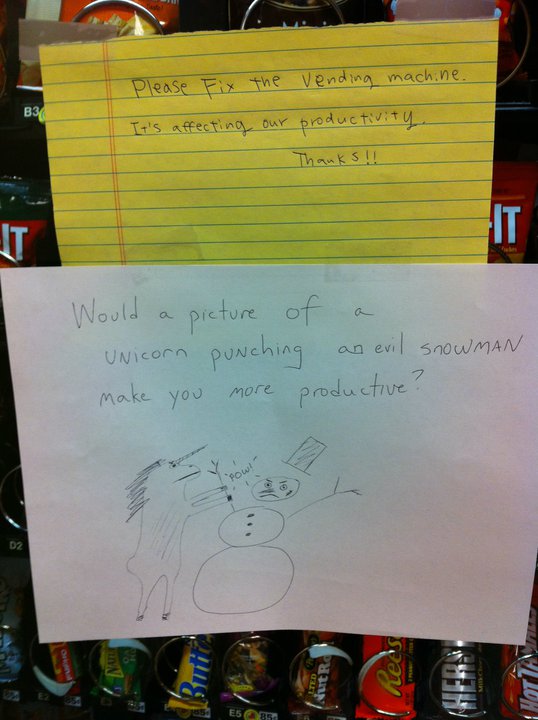 B3
Please Fix the vending machine.
It's affecting our productivity.
Thanks!!
IT
IT
Would a picture of a
unicorn punching an evil snowman
make you more productive?
POW!
D2
E2
E5
Reese
HERS